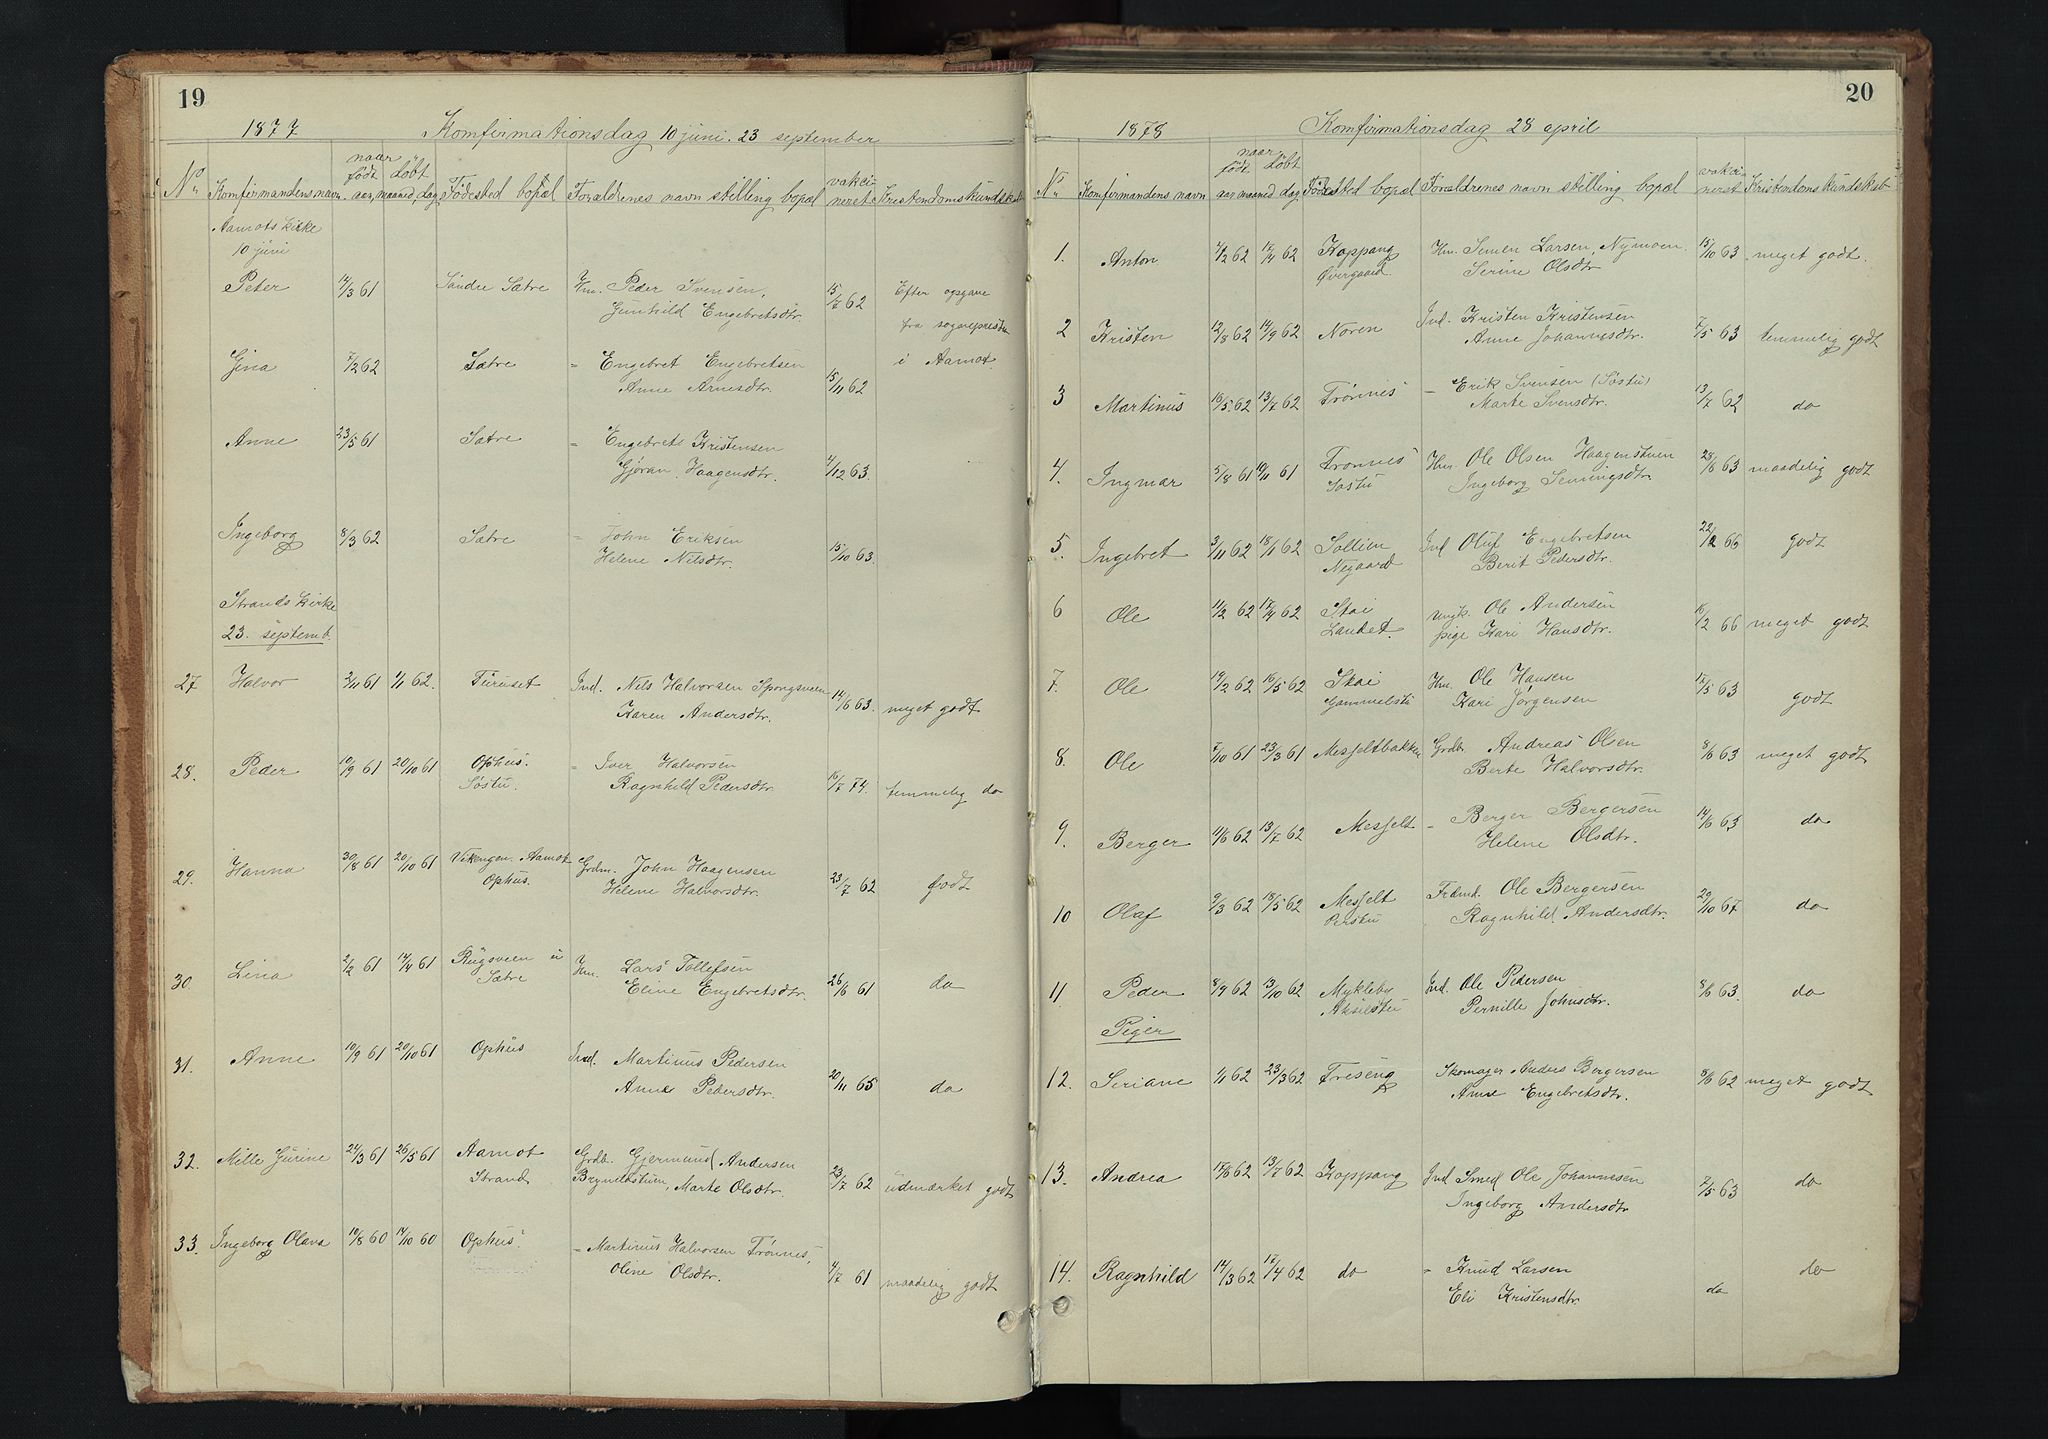 19
1877 Komfirmationsdag 10 juni. 23 september
No Komfirmandens navn naar født döbt aar, maaned, dag Fødested bopæl Forældrenes navn stilling bopæl vakcineret Kristendomskundskab
Aamots kirke
10 juni
Peter 14/3 61 Söndre Sætre Hm. Peder Svensen, 15/7 62 Efter opgave
Gunhild Engebretsdtr. fra sognepresten
i Aamot.
Gina 7/2 62 Sætre = Engebret Engebretsen
Anne Arnesdtr. 15/11 62
Anne 23/5 61 Sætre = Engebret Kristensen
Gjøran Haagensdtr. 4/12 63.
Ingeborg 8/3 62 Sætre = John Eriksen
Helene Nilsdtr. 15/10 63.
Strands kirke
23. septemb.
27 Halvor 3/11 61 1/1 62. Furuset Ind. Nils Halvorsen Spongsveen
Karen Andersdtr. 14/6 63. meget godt
28. Peder 10/9 61 20/10 61 Ophus. = Iver Halvorsen
Søstu. Ragnhild Pedersdtr. 16/7 74. temmelig do
29. Hanna 30/8 61 20/10 61 Vikengen. Aamot Grdm. John Haagensen
Ophus. Helene Halvorsdtr. 23/7 62 godt
30. Lina 2/2 61 14/4 61 Rugsveen u Hm. Lars Tollefsen
Sætre Eline Engebretsdtr. 26/6 61 do
31. Anne 10/9 61 20/10 61 Ophus Ind. Martinus Pedersen
Anne Pedersdtr. 20/11 65 do
32. Mille Gurine 24/3 61 26/5 61 Aamot Grdb. Gjermund Andersen
Strand Brynildstuen, Marte Olsdtr. 23/7 62 udmærket godt
33. Ingeborg Olava 10/8 60 14/10 60 Ophus. = Martinus Halvorsen Trønnes,
Oline Olsdtr. 4/7 61 maadelig godt
20
1878 Komfirmationsdag 28 april
No Komfirmandens navn naar født döbt aar maaned dag Fødested bopæl Forældrenes navn stilling bopæl vakcineret Kristendomskundskab
1. Anton 2/2 62 17/4 62 Koppang Hm. Semen Larsen, Nymoen. 15/10 63 meget godt.
Øvergaard. Serine Olsdtr
2 Kristen 12/8 62 14/9 62 Noren Ind. Kristen Kristensen
Anne Johannesdtr. 7/5 63 temmelig godt
3 Martinus 16/5. 62 13/7 62 Trønnes = Erik Svensen (Søstu) 13/7 62 do
Marte Svensdtr.
4. Ingmar 5/8 61 10/11 61 Trønnes Hm. Ole Olsen Haagenstuen 28/6 63 maadelig godt
Søstu Ingeborg Semingsdtr.
5. Ingebret 3/11 62 18/11 62 Sollien Ind Oluf Engebretsen 22/2 66 godt
Negaard Berit Pedersdtr.
6 Ole 11/2 62 17/4 62 Stai ungk. Ole Andersen 16/2 66 meget godt
Landet. pige Kari Hansdtr.
7. Ole 14/2 62 16/5 62 Stai Hm. Ole Hansen 12/5 63 godt
Gammelstu Kari Jørgensen
8. Ole 7/10 61 23/3 61 Messeltbakken Grdb. Andreas Olsen 8/6 63 meget godt
Berte Halvorsdtr.
9. Berger 11/6 62 13/7 62 Messelt = Berger Bergersen 14/6 63 do
Helene Olsdtr.
10 Olaf 9/3 62 18/5 62 Messelt Frdmd. Ole Bergersen 29/10 67 do
Perstu Ragnhild Andersdtr.
11 Peder 8/9 62 13/10 62 Mykleby Ind. Ole Pedersen 8/6 63. do
Akselstu Pernille Johnsdtr.
Piger
12. Seriane 1/1 62 23/3 62 Treseng Skomager Anders Bergersen 8/6 62 meget godt
Anne Engebretsdtr.
13. Andrea 17/6 62 13/7 62 Koppang Ind Smed Ole Johannesen 7/5 63 do
Ingeborg Andersdtr
14. Ragnhild 14/3 62 17/4 62 do = Knud Larsen do
Eli Kristensdtr. do